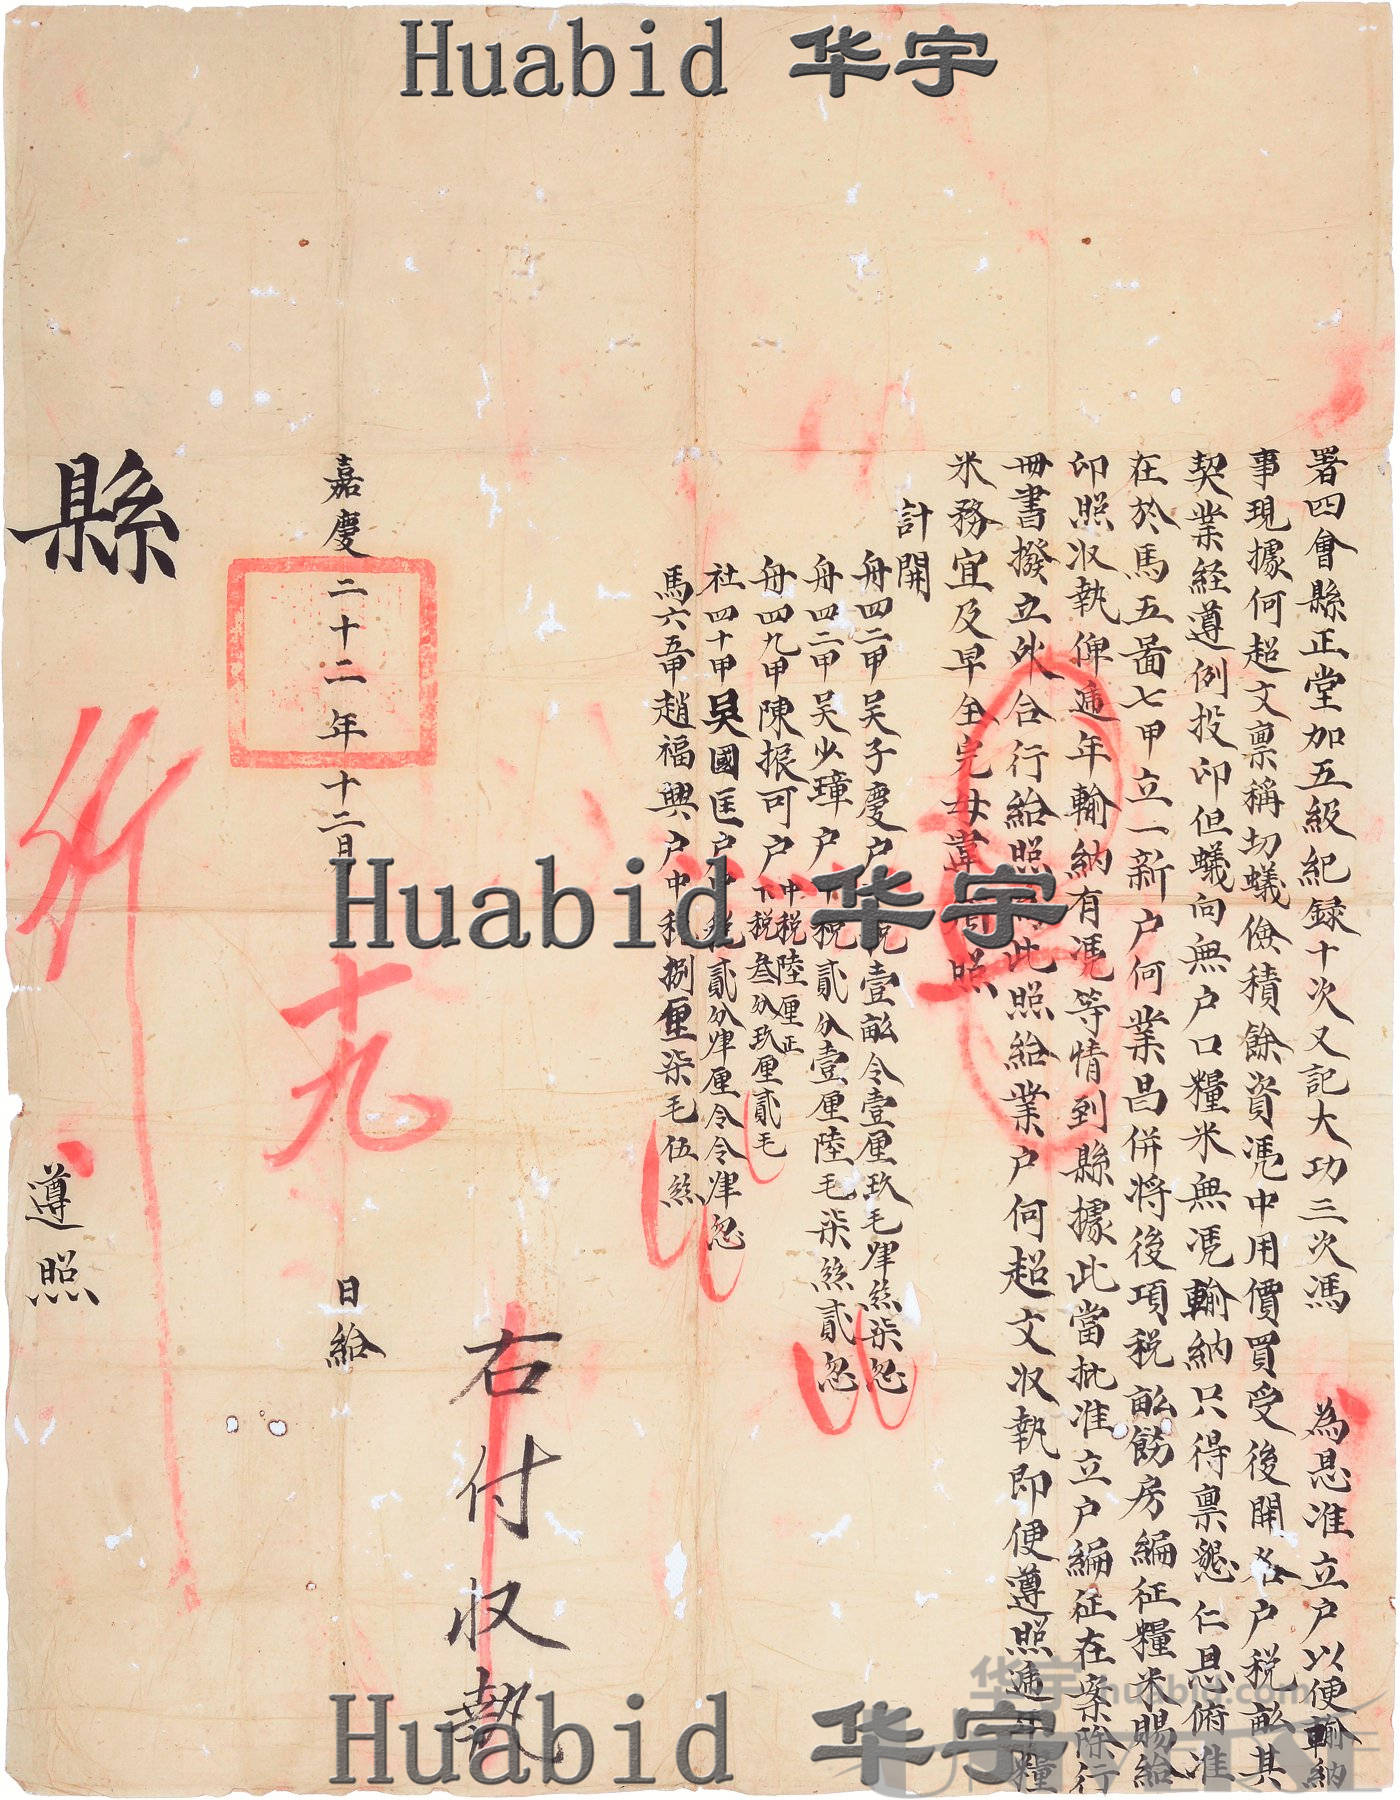 Huabid 华宇
署四會縣正堂加五級紀錄十次又記大功三次馮 為恳准立户以便輸納
事現據何超文禀稱切蟻儉積餘資凴中用價買受後開各户税畝其
契業经遵例投印但蟻向無户口糧米無凴輸納只得禀懇仁恩俯准
在於馬五啚七甲立一新户何業昌併將後項税畝飭房編征糧米賜給
印照收執俾逓年輸納有凴等情到縣據此當批准立户編征在案除行
冊書撥立外合行給照 此照給業户何超文收執即便遵照逓年糧
米務宜及早全完毋違 照
計開
舟四二甲吴子慶户 税壹畝令壹厘玖毛肆絲柒忽
舟四二甲吴少璋户下税貳分壹厘陸毛柒絲貳忽
舟四九甲陳振可户中税陸厘正
下税叁分玖厘貳毛
社四十甲吴國匡户 税貳分肆厘令令肆忽
馬六五甲趙福興户中税捌厘柒毛伍絲
右付収執
嘉慶二十二年十二月
十九
日給
縣
行
遵照
Huabid 华宇
Huabid 华宇
华宇 huabid.com